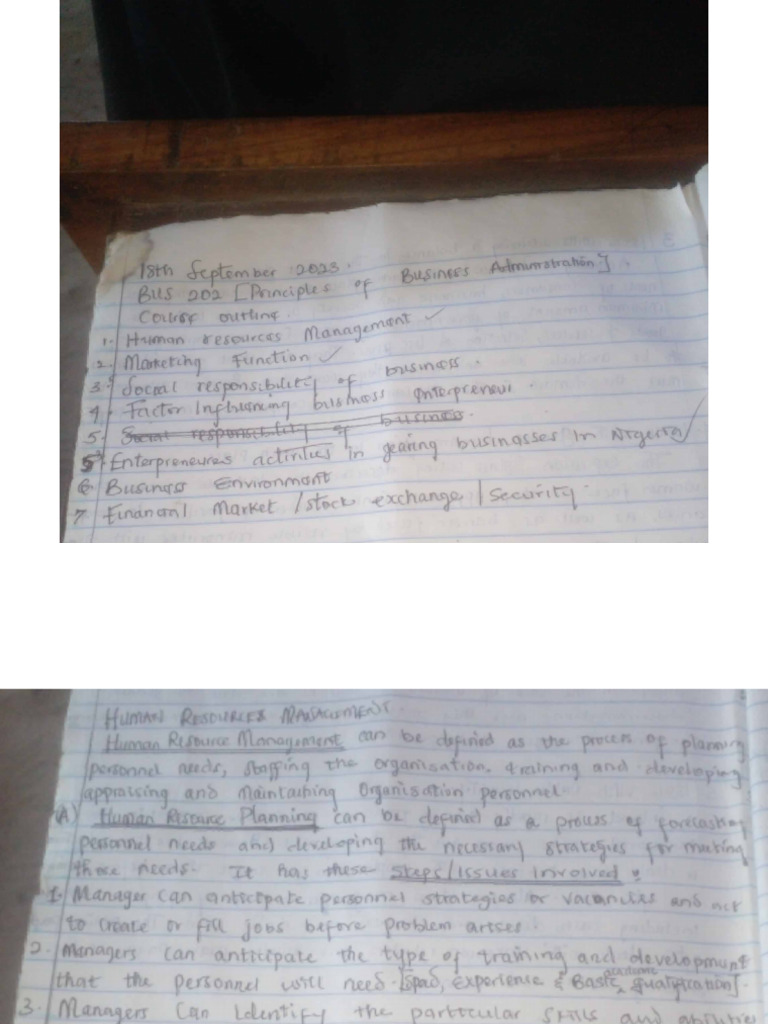 18th September 2023.
BUS 202 [Principles of Business Administration].
Course outline.
1. Human resources Management ✓
2. Marketing Function ✓
3. Social responsibility of business.
4. Factor Influencing business Enterpreneur.
5. Social responsibility of business.
5. Enterpreneures activities in gearing businesses in Nigeria ✓
6. Business Environment
7. Financial Market / stock exchange / Security.
HUMAN RESOURCES MANAGEMENT.
Human Resource Management can be defined as the process of planning
personnel needs, staffing the organisation, training and developing
appraising and maintaining Organisation personnel.
(A) Human Resource Planning can be defined as a process of forecasting
personnel needs and developing the necessary strategies for meeting
those needs. It has these steps/Issues Involved:
1. Manager can anticipate personnel strategies or vacancies and act
to create or fill jobs before problem arises.
2. Managers can anticipate the type of training and development
that the personnel will need. experience & Basic academic qualification].
3. Managers Can Identify the particular skills and abilities